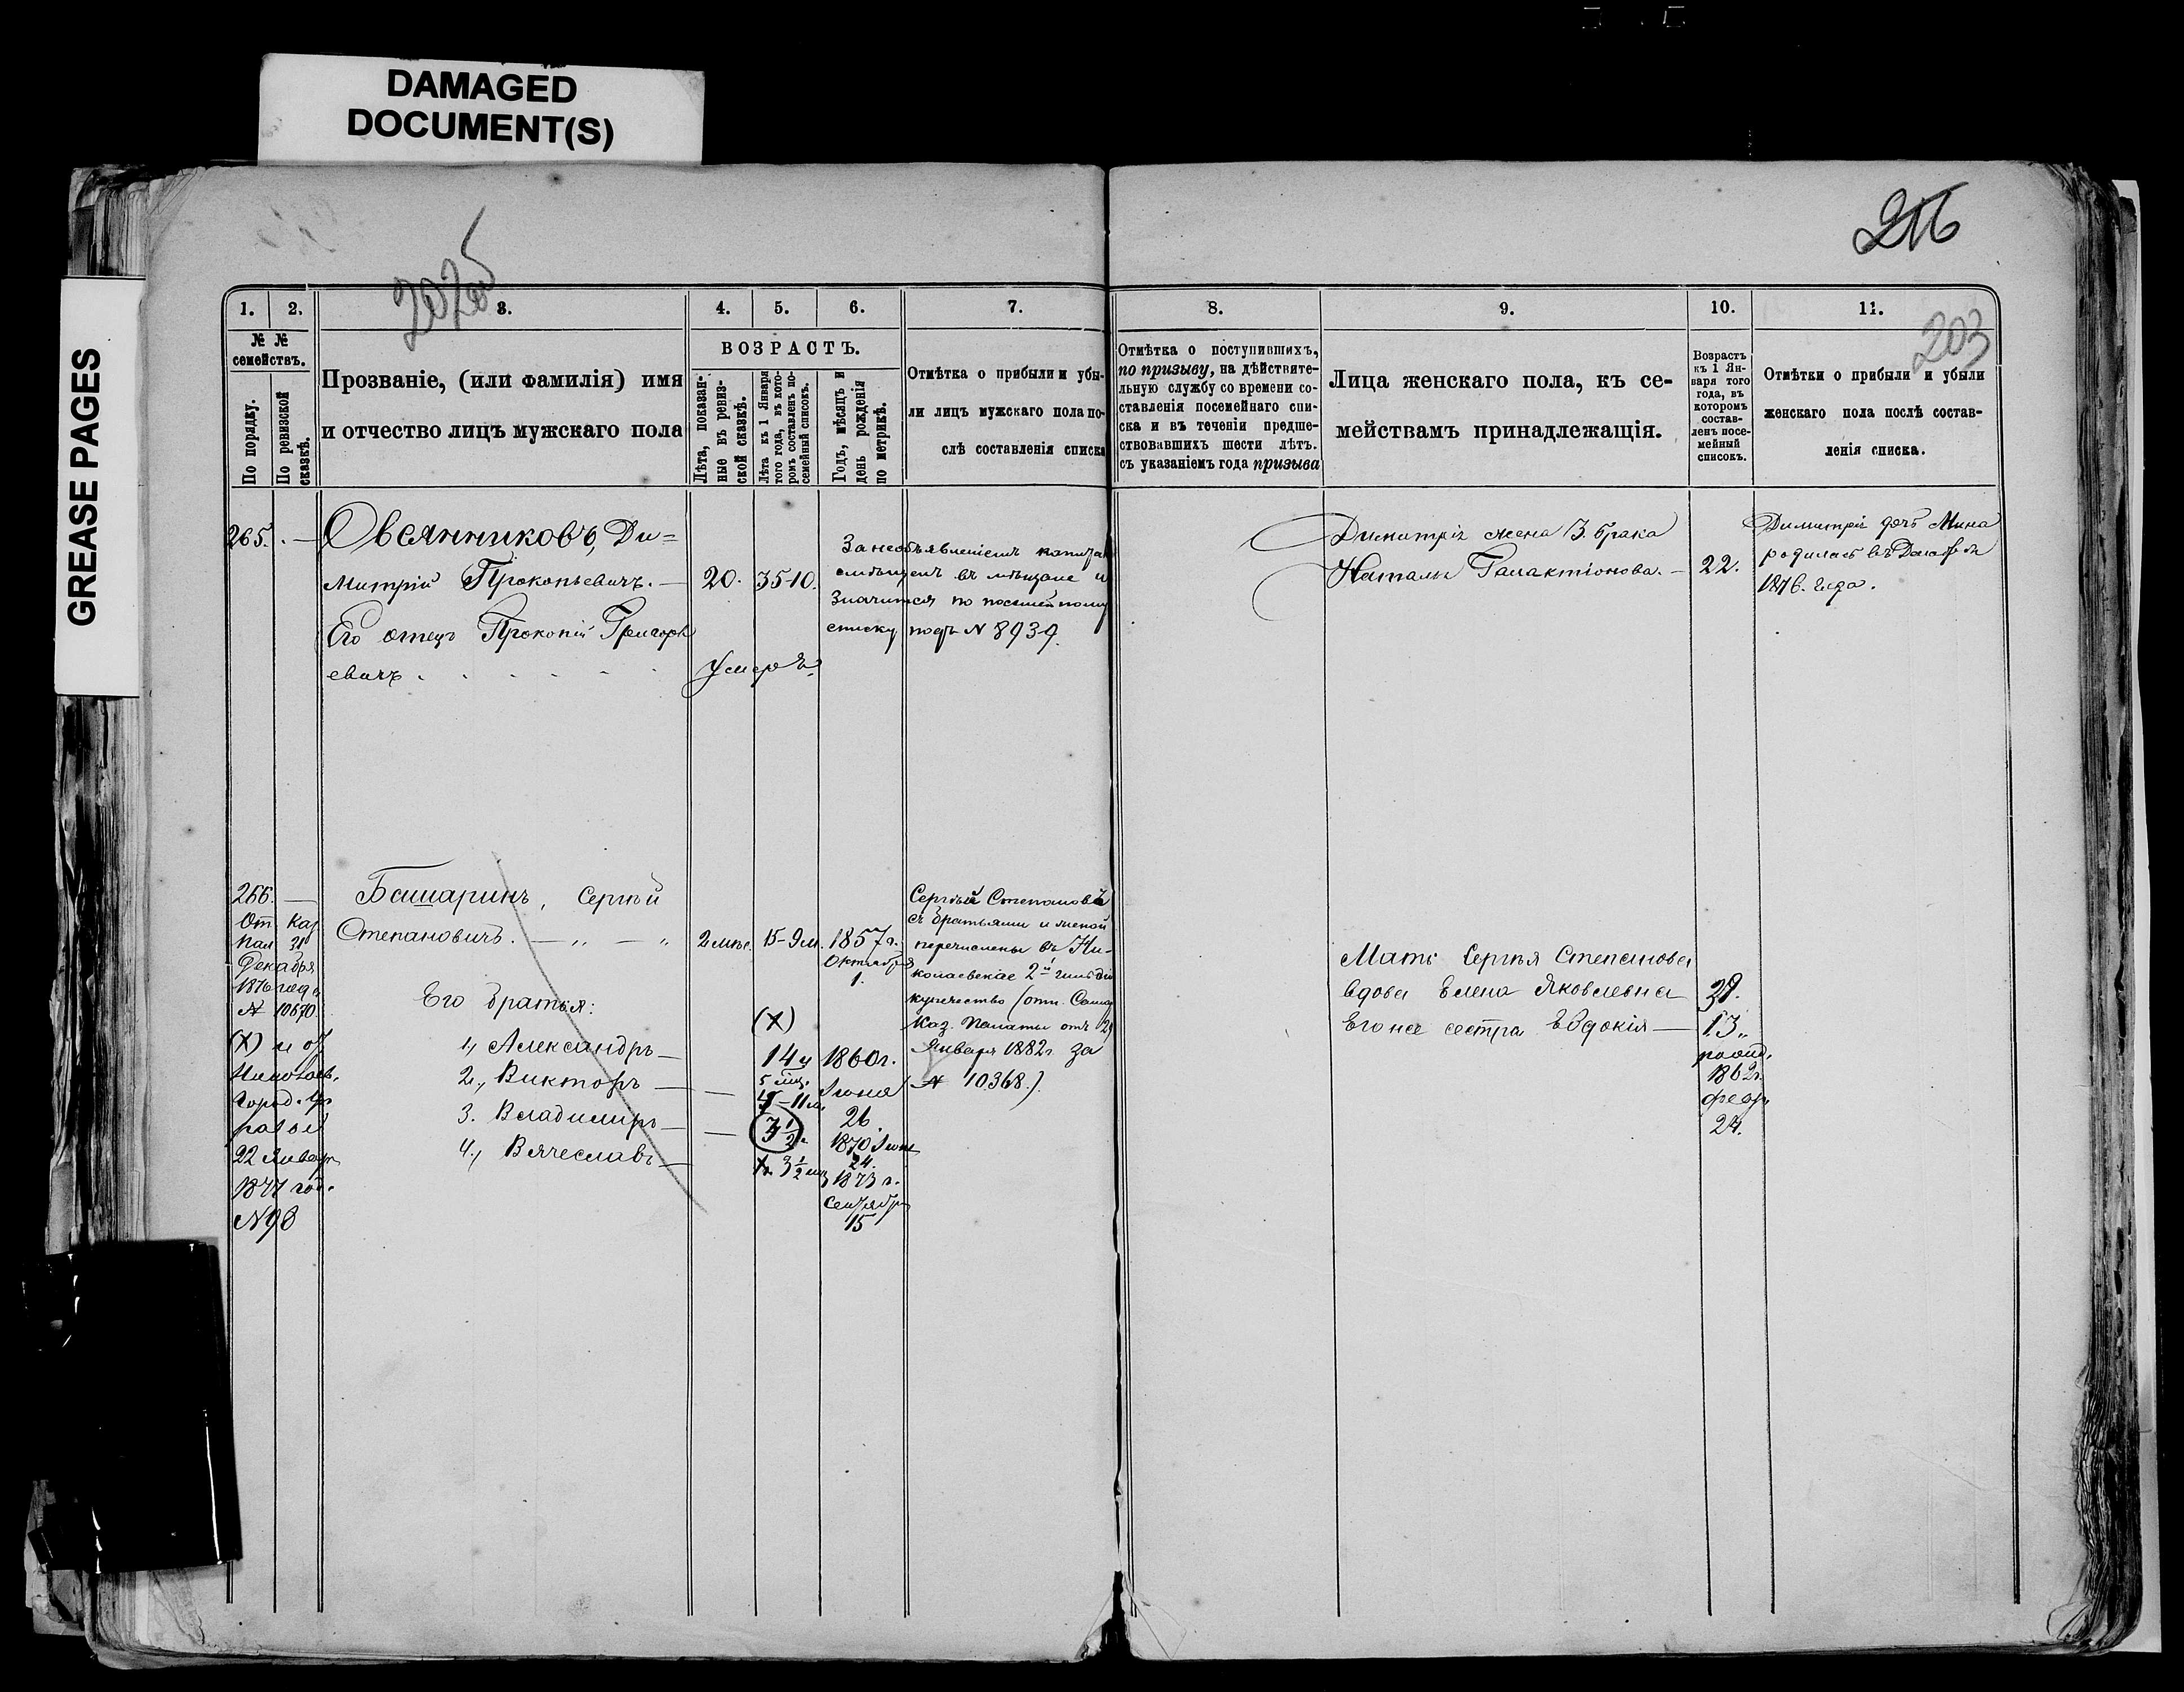 DAMAGED
DOCUMENT(S)
GREASE PAGES
216
203
1.
2.
3.
4.
5.
6.
7.
8.
9.
10.
11.
№ №
семействъ.
По порядку.
По ревизской
сказкѣ.
Прозваніе, (или фамилія) имя
и отчество лицъ мужскаго пола
ВОЗРАСТЪ.
Лѣта, показан-
ные въ ревиз-
ской сказкѣ.
Лѣта къ 1 Января
того года, въ кото-
ромъ составленъ по-
семейный списокъ.
Годъ, мѣсяцъ и
день рожденія
по метрикѣ.
Отмѣтка о прибыли и убы-
ли лицъ мужскаго пола по-
слѣ составленія списка
Отмѣтка о поступившихъ,
по призыву, на дѣйствите-
льную службу со времени со-
ставленія посемейнаго спи-
ска и въ теченіи предше-
ствовавшихъ шести лѣтъ.
съ указаніемъ года призыва
Лица женскаго пола, къ се-
мействамъ принадлежащія.
Возрастъ
къ 1 Ян-
варя того
года, въ
которомъ
состав-
ленъ посе-
мейный
списокъ.
Отмѣтки о прибыли и убыли
женскаго пола послѣ состав-
ленія списка.
265. —
Овсянниковъ, Ди=
митрій Прокопьевичъ. — 20. 35-10.
Его отецъ Прокопій Григорь
евичъ . . . . . . Умеръ.
За необъявленіемъ капитала
въ мѣщане и
значится по посемейному
списку подъ № 8939.
Димитрія жена 3. брака
Наталья Галактіонова. — 22.
Димитрія дочь Анна
родилась въ
1876. года.
266. —
От Каз
Пал 31
Декабря
1876 года
№ 10670
(X) и от
Николаев.
Город. Уп
равы
22 Январ
1877 год.
№98
Башаринъ, Сергѣй
Степановичъ. — „ — „ 15-9м. 1857 г.
Октября
1.
Его братья:
(X)
1, Александръ — 14 и 1860г.
5 мѣс. Іюня
2, Викторъ — — 11м. 26.
3. Владимиръ — — 1870 Іюня
24.
4, Вячеславъ — 3 1/2 1873 г.
Сентября
15
Сергѣй Степановъ
съ братьями и женой
перечислены въ Ни-
колаевское 2й гильдіи
купечество (отн. Самар
Каз. Палаты отъ 29
Января 1882г за
№ 10368.)
Мать Сергѣя Степанова
вдова Елена Яковлевна
Его же сестра Евдокія — 13.
1862г.
февр
24.